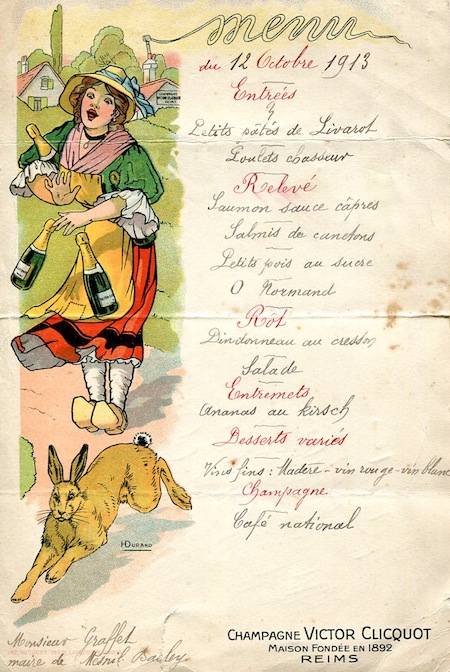 menu
du 12 Octobre 1913
Entrées
Petits pâtés de Livarot
Poulets chasseur
Relevé
Saumon sauce câpres
Salmis de canetons
Petits pois au sucre
O Normand
Rôt
Dindonneau au cresson
Salade
Entremets
Ananas au kirsch
Desserts variés
Vins fins : Madère - vin rouge - vin blanc
Champagne
Café national
H DURAND
Monsieur Graffet
maire de Mesnil
CHAMPAGNE VICTOR CLICQUOT
MAISON FONDÉE EN 1892
REIMS